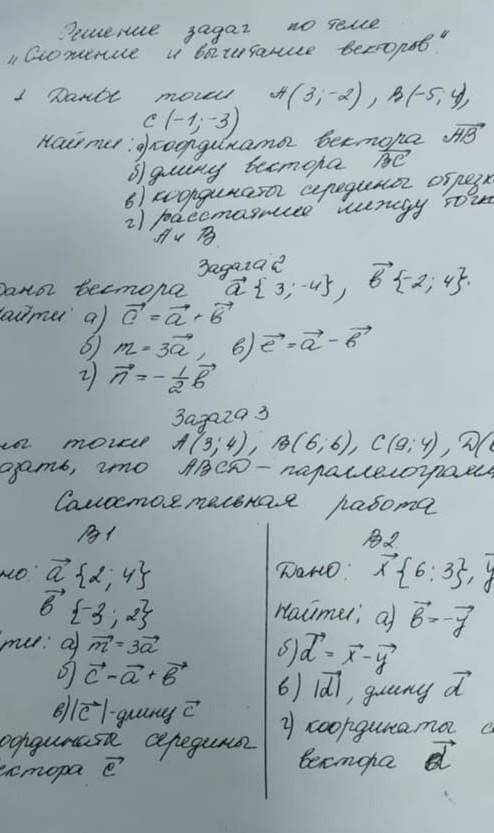 Решение задач по теме
"Сложение и вычитание векторов"
1 Даны точки A(3;-2), B(-5;4),
C(-1;-3)
Найти: а) координаты вектора AB
б) длину вектора BC
в) координаты середины отрезк
г) расстояние между точк
A и B.
Задача 2
Даны вектора a{3;-4}, b{-2;4}.
Найти: а) c = a + b
б) m = 3a, в) e = a - b
г) n = -1/2 b
Задача 3
ны точки A(3;4), B(6;6), C(9;4), D(6
азать, что ABCD - параллелограмм
Самостоятельная работа
В1
но: a{2;4}
b{-3;2}
йти: а) m = 3a
б) c - a + b
в) |c| - длину c
оордината середины
ектора c
В2
Дано: x{6;3}, y
Найти: а) b = -y
б) d = x - y
в) |d|, длину d
г) координаты с
вектора d